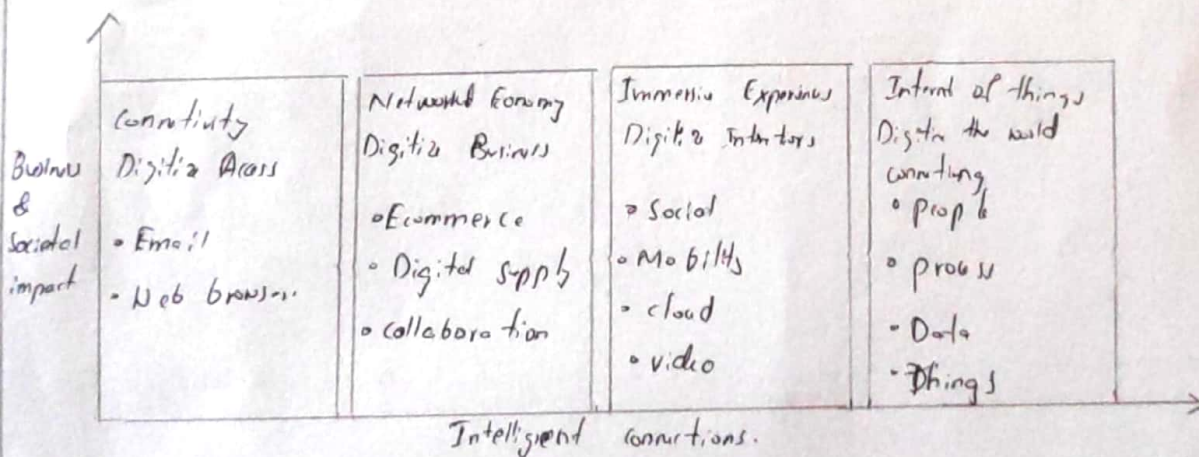 Business
&
Societal
impact
Connectivity
Digitize Access
• Email
• Web browser.
Networked Economy
Digitize Business
• Ecommerce
• Digital supply
• collaboration
Immersive Experiences
Digitize
• Social
• Mobility
• cloud
• video
Internet of things
Digitize the world
connecting
• People
• process
• Data
• Things
Intelligent connections.